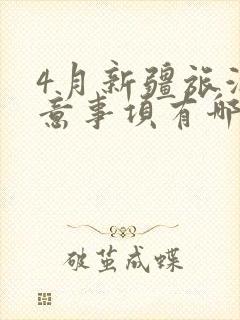 4月新疆旅
意事项有哪
破茧成蝶